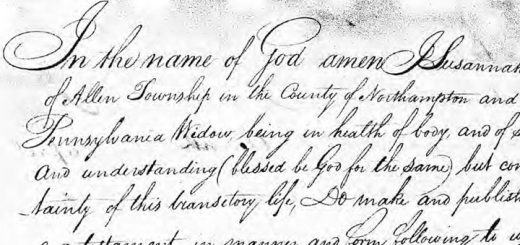 In the name of God amen I Susannah
of Allen Township in the County of Northampton and
Pennsylvania Widow, being in health of body, and of s
And understanding (blessed be God for the same) but con
tainty of this transetory life, Do make and publish
testament in manner and form following to